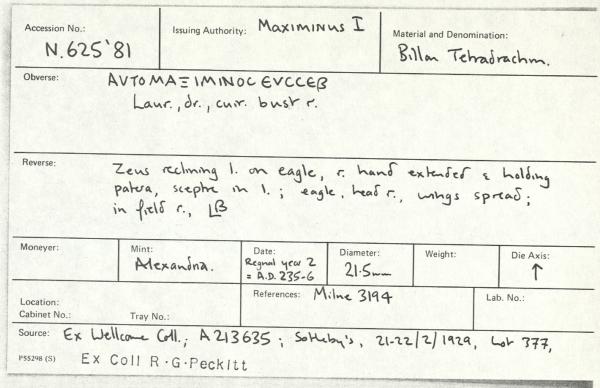 Accession No.: N.625'81
Issuing Authority: Maximinus I
Material and Denomination: Billon Tetradrachm.
Obverse: AVTOMAΞIMINOC EVCCEB
Laur., dr., cuir. bust r.
Reverse: Zeus reclining l. on eagle, r. hand extended & holding
patera, sceptre in l.; eagle, head r., wings spread;
in field r., LB
Moneyer:
Mint: Alexandria.
Date: Regnal year 2
= A.D. 235-6
Diameter: 21.5mm
Weight:
Die Axis: ↑
Location:
Cabinet No.: Tray No.:
References: Milne 3194
Lab. No.:
Source: Ex Wellcome Coll.; A213635; Sotheby's, 21-22/2/1929, Lot 377,
P55298 (S) Ex Coll R.G.Peckitt